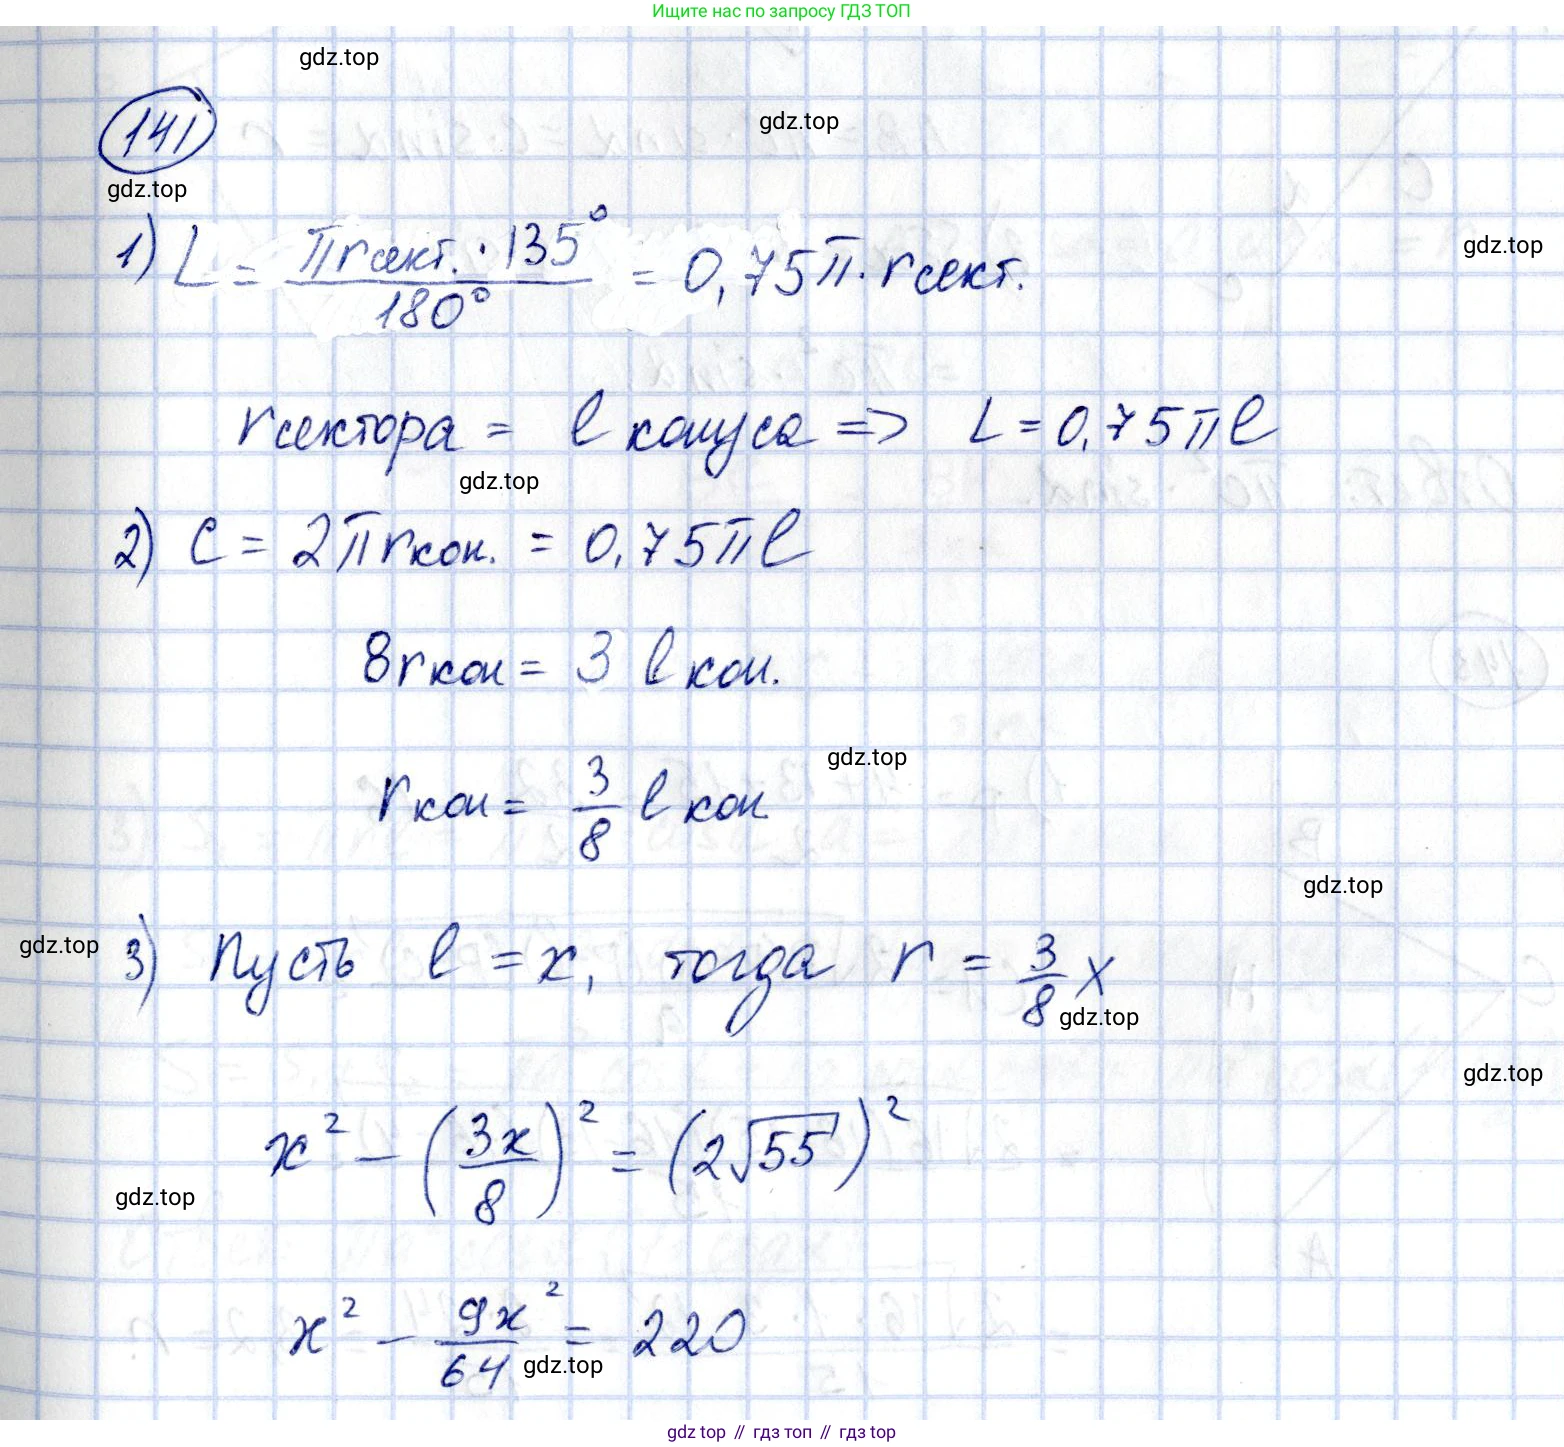 Ищите нас по запросу ГДЗ ТОП
gdz.top
141
gdz.top
gdz.top
1) L = πrсект. · 135° / 180° = 0,75π · rсект.
gdz.top
rсектора = l конуса => L = 0,75πl
gdz.top
2) C = 2πrкон. = 0,75πl
8rкон = 3 l кон.
gdz.top
rкон = 3/8 l кон
gdz.top
gdz.top
3) Пусть l = x, тогда r = 3/8 x
gdz.top
gdz.top
x² − (3x/8)² = (2√55)²
gdz.top
x² − 9x²/64 = 220
gdz.top
gdz top // гдз топ // гдз top